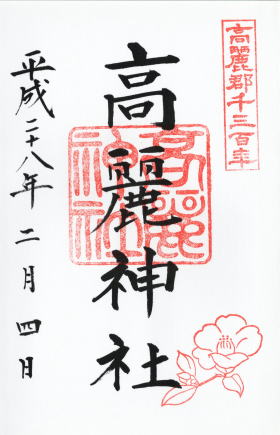 高麗郡千三百年
高麗神社
高麗神社
平成二十八年二月四日